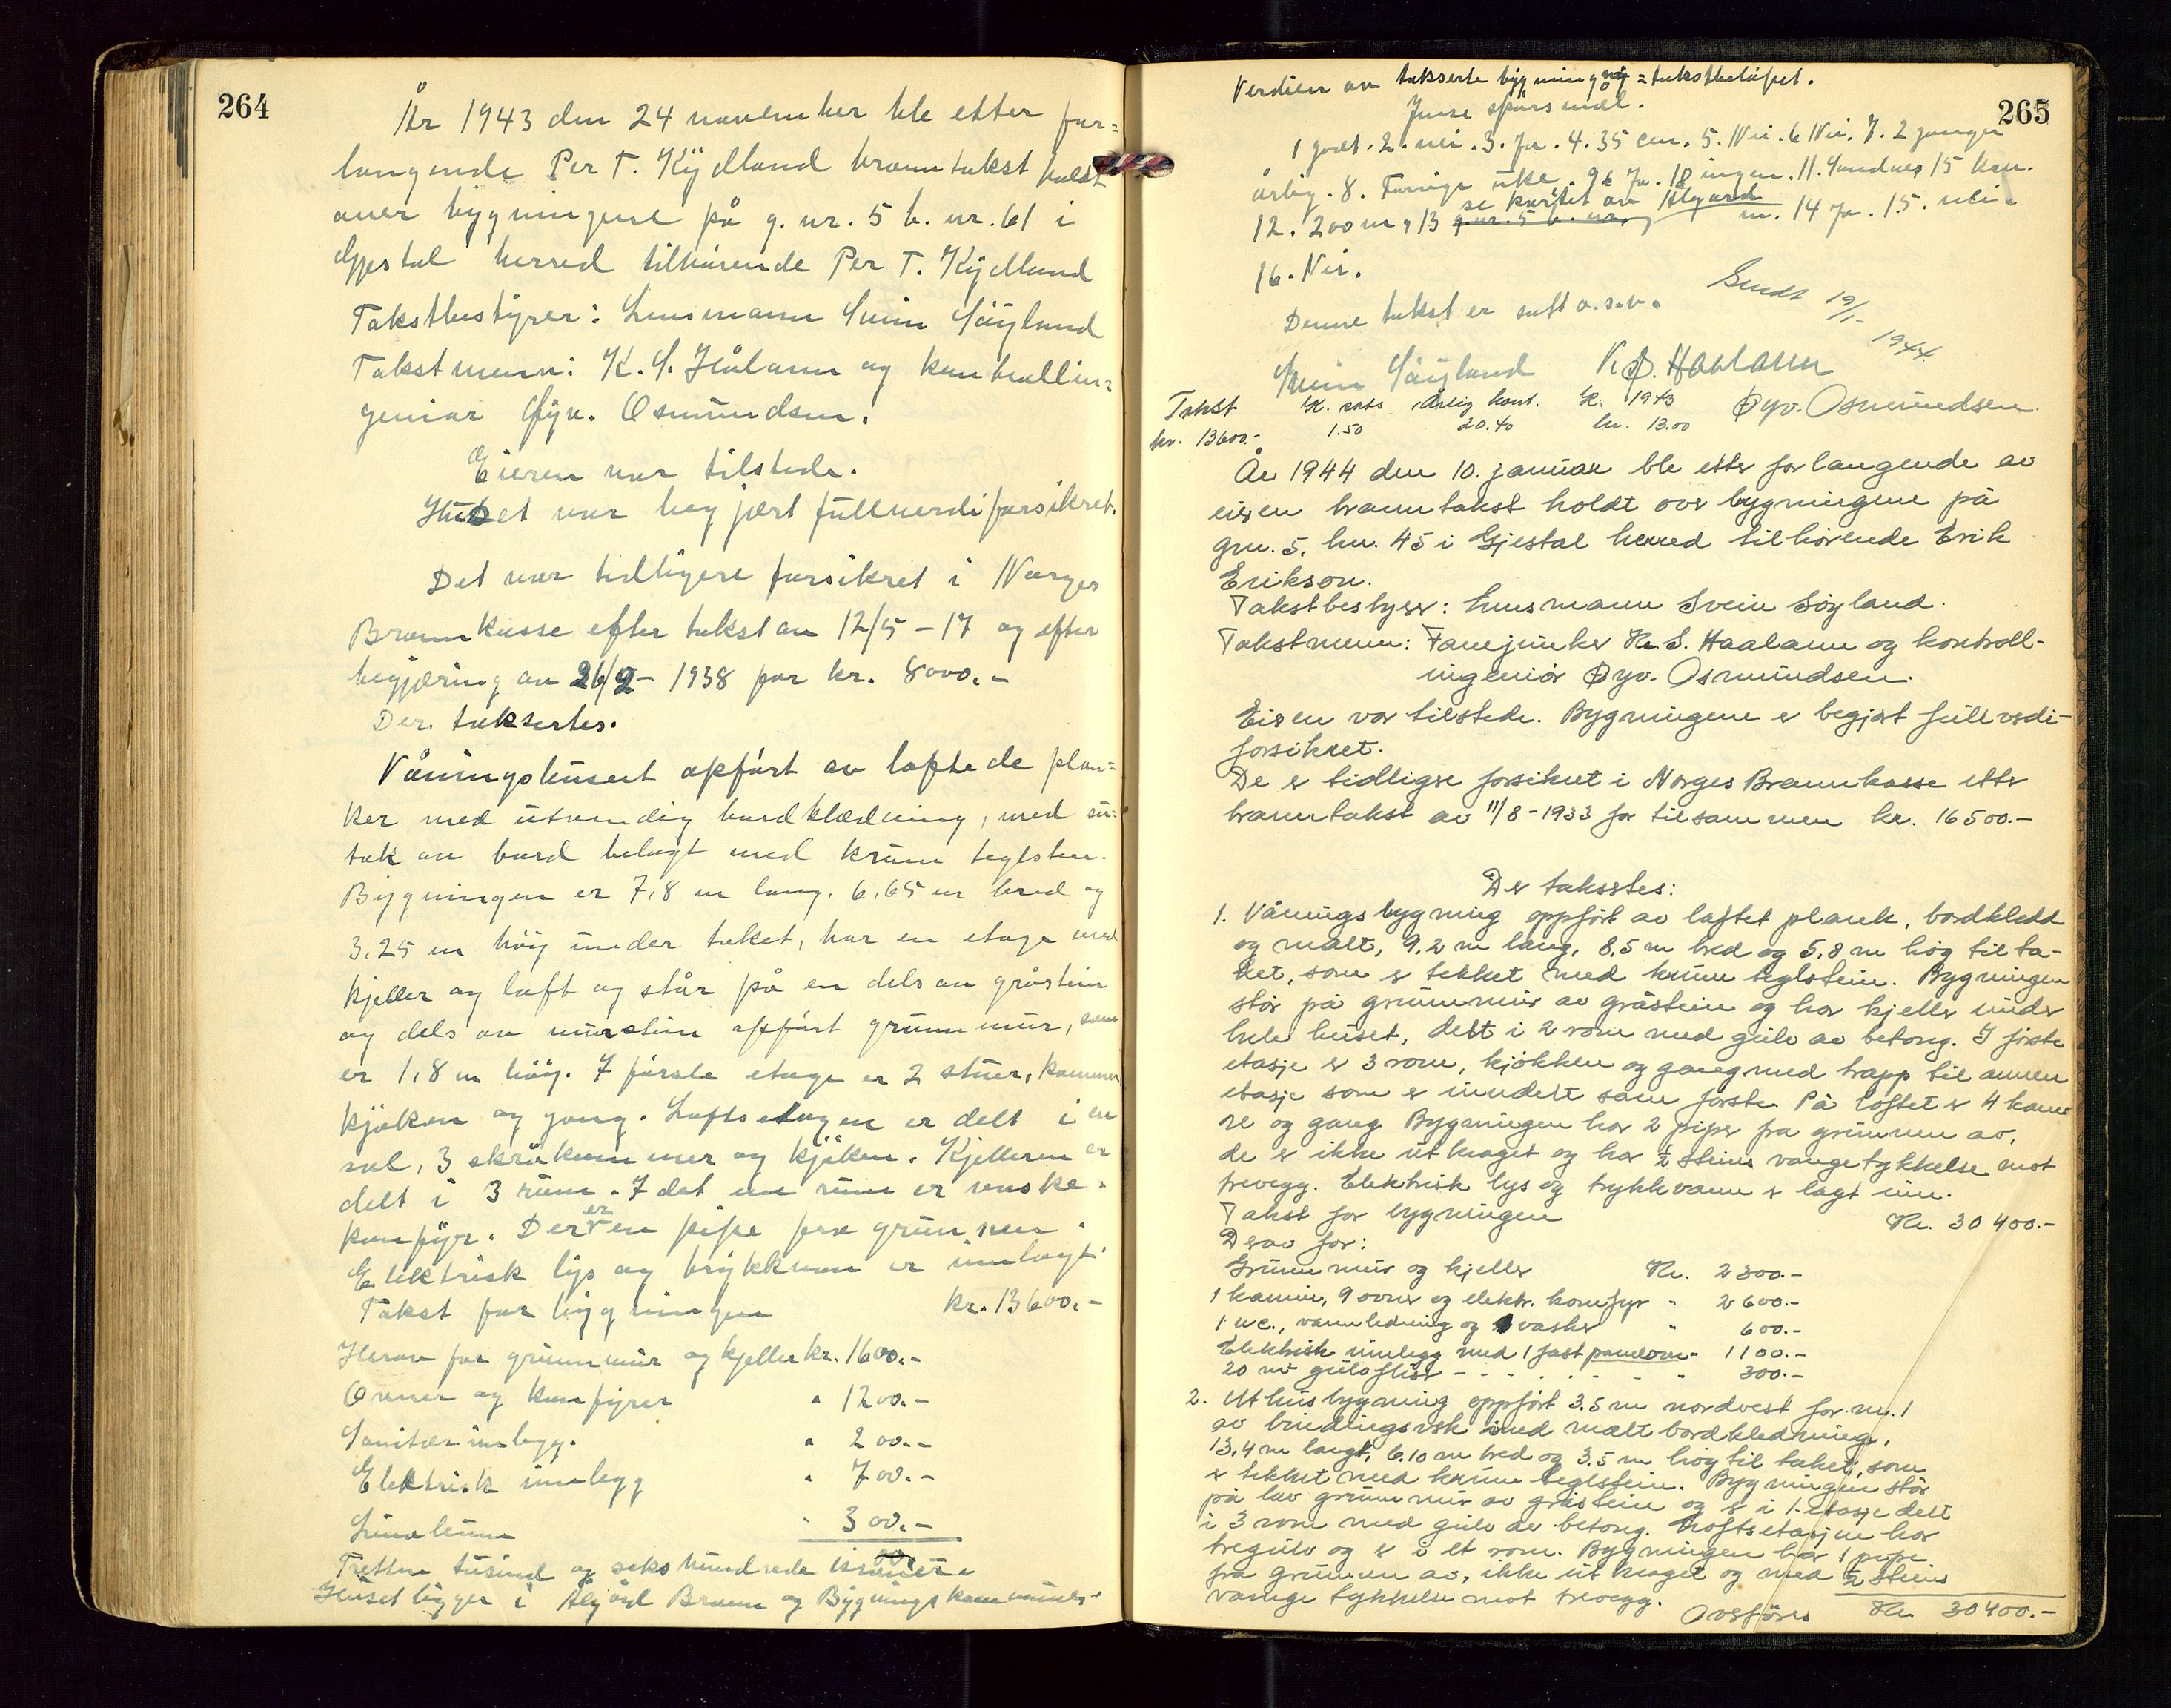 264
År 1943 den 24 november ble etter for=
langende Per T. Kydland branntakst holdt
over bygningene på g. nr. 5 b. nr. 61 i
Gjestal herred tilhørende Per T. Kydland
Takstbestyrer: Lensmann Svein Söyland
Takstmenn: K. S. Hålann og kontrollin=
geniør Øyv. Osmundsen.
Eieren var tilstede.
Huset var begjært fullverdiforsikret.
Det var tidligere forsikret i Norges
Brannkasse efter takst av 12/5 - 17 og efter
begjæring av 26/2 - 1938 for kr. 8000.-
Der taksertes.
Våningshuset opført av laftede plan=
ker med utvendig bordklædning, med su=
tak av bord belagt med krum teglsten.
Bygningen er 7,8 m lang. 6,65 m bred og
3,25 m höy under taket, har en etage med
kjeller og loft og står på en dels av gråstein
og dels av murstein opført grunnmur, som
er 1,8 m höy. I første etage er 2 stuer, kammer
kjøken og gang. Loftsetagen er delt i en
sal, 3 skråkammer og kjøken. Kjelleren er
delt i 3 rum. I det ene rum er vaske-
komfyr. Der er en pipe fra grunnen.
Elektrisk lys og trykkvan er innlagt
Takst for bygningen kr. 13600.-
Herav for grunnmur og kjeller kr. 1600.-
Ovner og komfyrer " 1200.-
Sanitær innlegg. " 200.-
Elektrisk innlegg " 700.-
Linoleum " 300.-
Tretten tusind og sekshundrede kroner
Huset ligger i Ålgård Brann og Bygningskommune.
265
Verdien av takserte bygning = takstbeløpet.
Jnse spørsmål.
1 godt. 2. nei. 3. Ja. 4. 35 cm. 5. Nei. 6 Nei. 7. 2 ganger
årlig. 8. Forrige uke. 9. Ja. 10 ingen. 11. Sandnes 15 km.
se kartet av Ålgård
12. 200 m, 13 g.nr. 5 b. nr. 14 Ja. 15. nei.
16. Nei.
Denne takst er satt o.s.v.
Sendt 19/1- 1944
Svein Söyland K. S. Haalann
Takst K. sats Årlig kont. K. 1943 Øyv. Osmundsen
kr. 13600.- 1.50 20.40 kr. 13.00
År 1944 den 10. januar ble etter forlangende av
eieren branntakst holdt over bygningene på
gnr. 5, bnr. 45 i Gjestal herred tilhørende Erik
Erikson.
Takstbestyrer: lensmann Svein Söyland.
Takstmenn: Fanejunker K. S. Haalann og kontroll-
ingeniör Øyv. Osmundsen.
Eieren var tilstede. Bygningene er begjært fullverdi-
forsikret.
De er tidligere forsikret i Norges Brannkasse etter
branntakst av 11/8 - 1933 for tilsammen kr. 16500.-
Der taksertes:
1. Våningsbygning oppfört av laftet plank, bordkledd
og malt, 9,2 m lang, 8,5 m bred og 5,8 m høg til ta-
ket, som er tekket med krum teglstein. Bygningen
står på grunnmur av gråstein og har kjeller under
hele huset, delt i 2 rom med gulv av betong. I förste
etasje er 3 rom, kjökken og gang med trapp til annen
etasje som er inndelt som förste. På loftet er 4 kamre
re og gang. Bygningen har 2 piper fra grunnen av,
de er ikke utkraget og har 1/2 steins vangetykkelse mot
trevegg. Elektrisk lys og trykkvann er lagt inn.
Takst for bygningen Kr. 30400.-
Derav for:
Grunnmur og kjeller Kr. 2300.-
1 kamin, 9 ovner og elektr. komfyr " 2600.-
1 wc., vannledning og vasker " 600.-
Elektrisk innlegg med 1 fast panelovn - 1100.-
20 m² gulvfliser - - . . . . - " 300.-
2. Uthusbygning oppfört 3.5 m nordvest for nr. 1
av bindingsverk med malt bordkledning,
13,4 m langt, 6.10 m bred og 3.5 m høg til taket, som
er tekket med krum teglstein. Bygningen står
på lav grunnmur av gråstein og er i 1. etasje delt
i 3 rom med gulv av betong. Loftsetasjen har
tregulv og er i et rom. Bygningen har 1 pipe
fra grunnen av, ikke utkraget og med 1/2 steins
vange tykkelse mot trevegg.
Overföres Kr. 30400.-